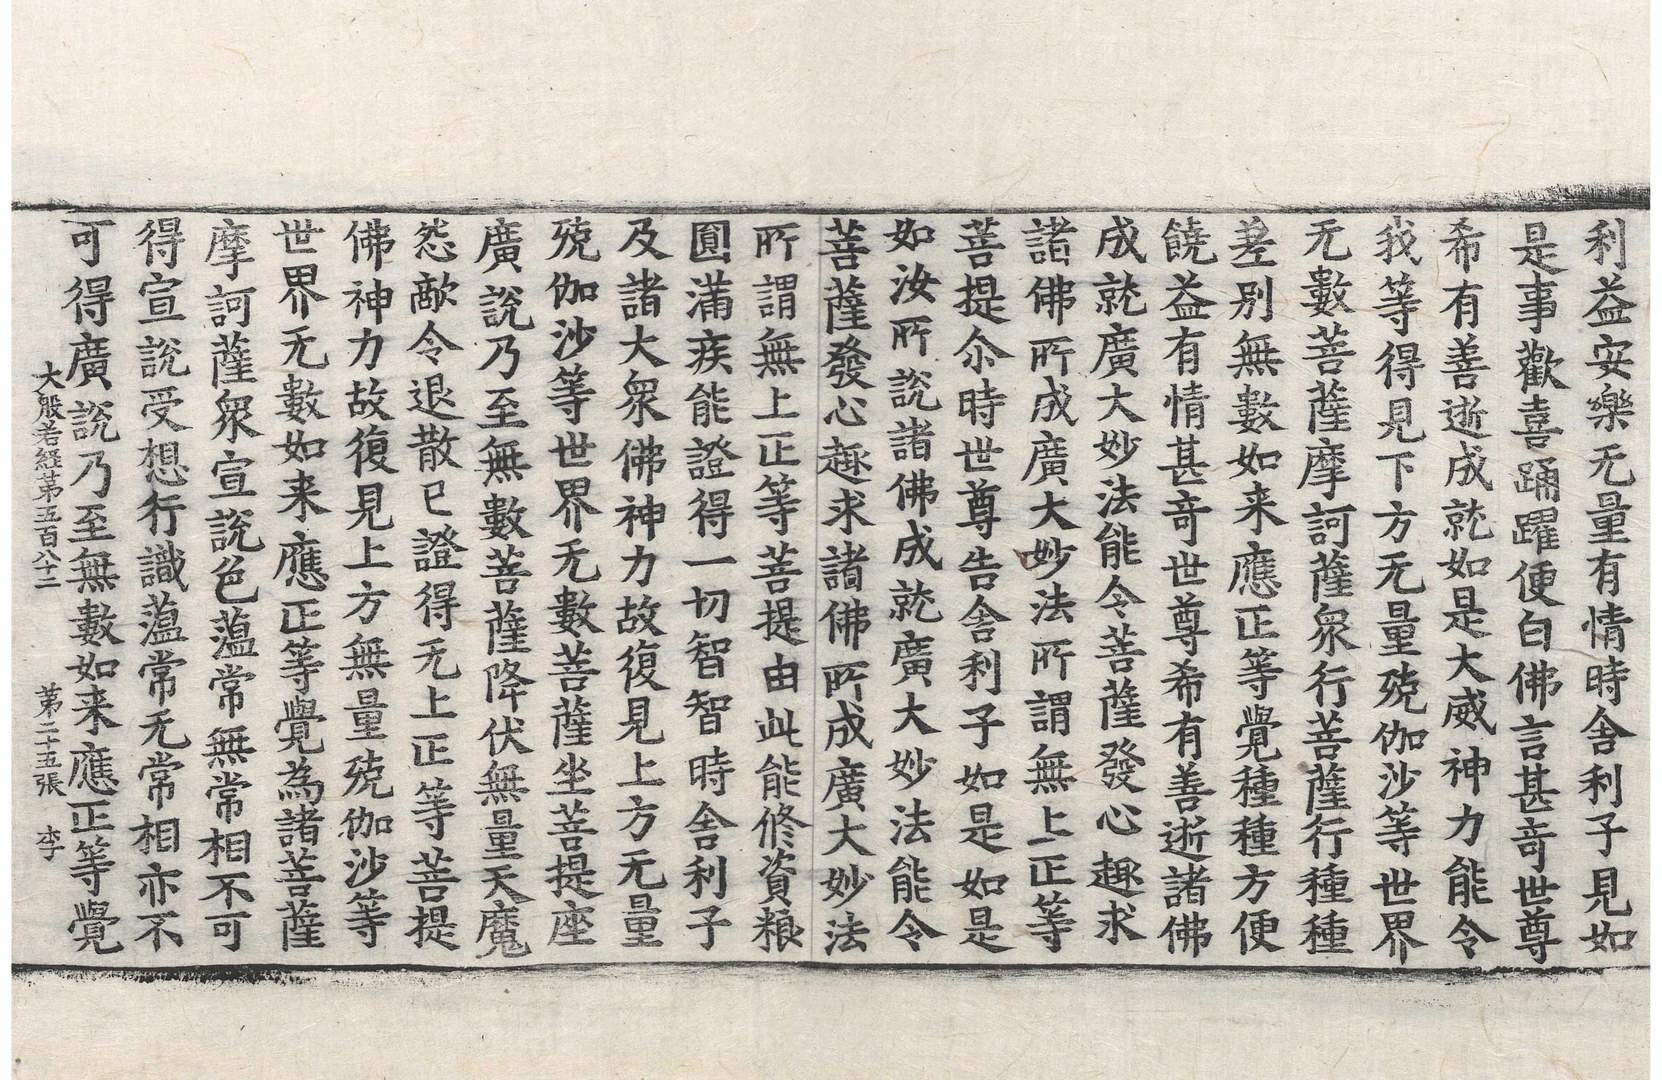 利益安樂无量有情時舍利子見如
是事歡喜踊躍便白佛言甚竒世尊
希有善逝成就如是大威神力能令
我等得見下方无量殑伽沙等世界
无數菩薩摩訶薩衆行菩薩行種種
差别無數如来應正等覺種種方便
饒益有情甚竒世尊希有善逝諸佛
成就廣大妙法能令菩薩發心趣求
諸佛所成廣大妙法所謂無上正等
菩提尒時世尊告舍利子如是如是
如汝所說諸佛成就廣大妙法能令
菩薩發心趣求諸佛所成廣大妙法
所謂無上正等菩提由此能修資粮
圓滿疾能證得一切智智時舍利子
及諸大衆佛神力故復見上方无量
殑伽沙等世界无數菩薩坐菩提座
廣說乃至無數菩薩降伏無量天魔
怨敵令退散已證得无上正等菩提
佛神力故復見上方無量殑伽沙等
世界无數如来應正等覺為諸菩薩
摩訶薩衆宣說色蘊常無常相不可
得宣說受想行識蘊常无常相亦不
可得廣說乃至無數如来應正等覺
大般若經第五百八十二 第二十五張 李